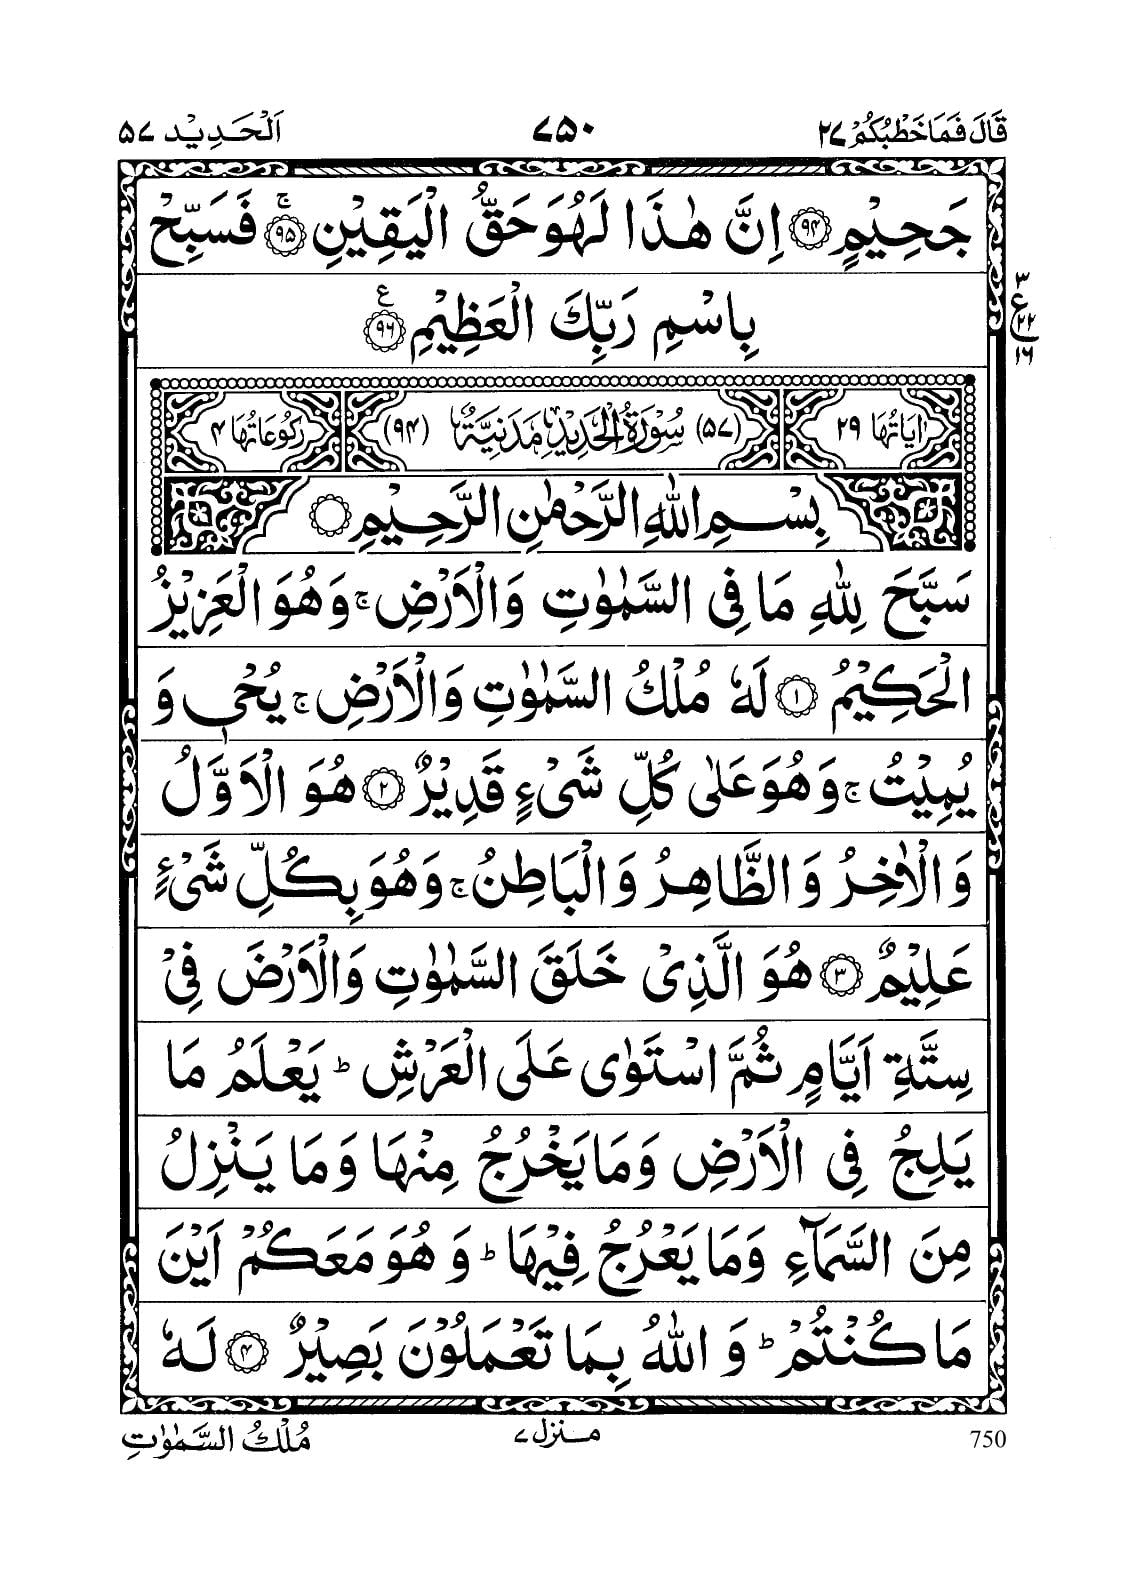 قَالَ فَمَا خَطْبُكُمْ ۲۷ ۷۵۰ اَلْحَدِيْد ۵۷
جَحِيْمٍ ۹۴ اِنَّ هٰذَا لَهُوَ حَقُّ الْيَقِيْنِ ج ۹۵ فَسَبِّحْ
بِاسْمِ رَبِّكَ الْعَظِيْمِ ع ۹۶
۳
ع
۲۲
۱۶
اٰيَاتُهَا ۲۹ (۵۷) سُوْرَةُ الْحَدِيْدِ مَدَنِيَّةٌ (۹۴) رُكُوْعَاتُهَا ۴
بِسْمِ اللّٰهِ الرَّحْمٰنِ الرَّحِيْمِ
سَبَّحَ لِلّٰهِ مَا فِى السَّمٰوٰتِ وَالْاَرْضِ ج وَهُوَ الْعَزِيْزُ
الْحَكِيْمُ ۱ لَهٗ مُلْكُ السَّمٰوٰتِ وَالْاَرْضِ ج يُحْيٖ وَ
يُمِيْتُ ج وَهُوَ عَلٰى كُلِّ شَىْءٍ قَدِيْرٌ ۲ هُوَ الْاَوَّلُ
وَالْاٰخِرُ وَالظَّاهِرُ وَالْبَاطِنُ ج وَهُوَ بِكُلِّ شَىْءٍ
عَلِيْمٌ ۳ هُوَ الَّذِىْ خَلَقَ السَّمٰوٰتِ وَالْاَرْضَ فِىْ
سِتَّةِ اَيَّامٍ ثُمَّ اسْتَوٰى عَلَى الْعَرْشِ ط يَعْلَمُ مَا
يَلِجُ فِى الْاَرْضِ وَمَا يَخْرُجُ مِنْهَا وَمَا يَنْزِلُ
مِنَ السَّمَآءِ وَمَا يَعْرُجُ فِيْهَا ط وَهُوَ مَعَكُمْ اَيْنَ
مَا كُنْتُمْ ط وَاللّٰهُ بِمَا تَعْمَلُوْنَ بَصِيْرٌ ۴ لَهٗ
750 مـنزل ۷ مُلْكُ السَّمٰوٰتِ